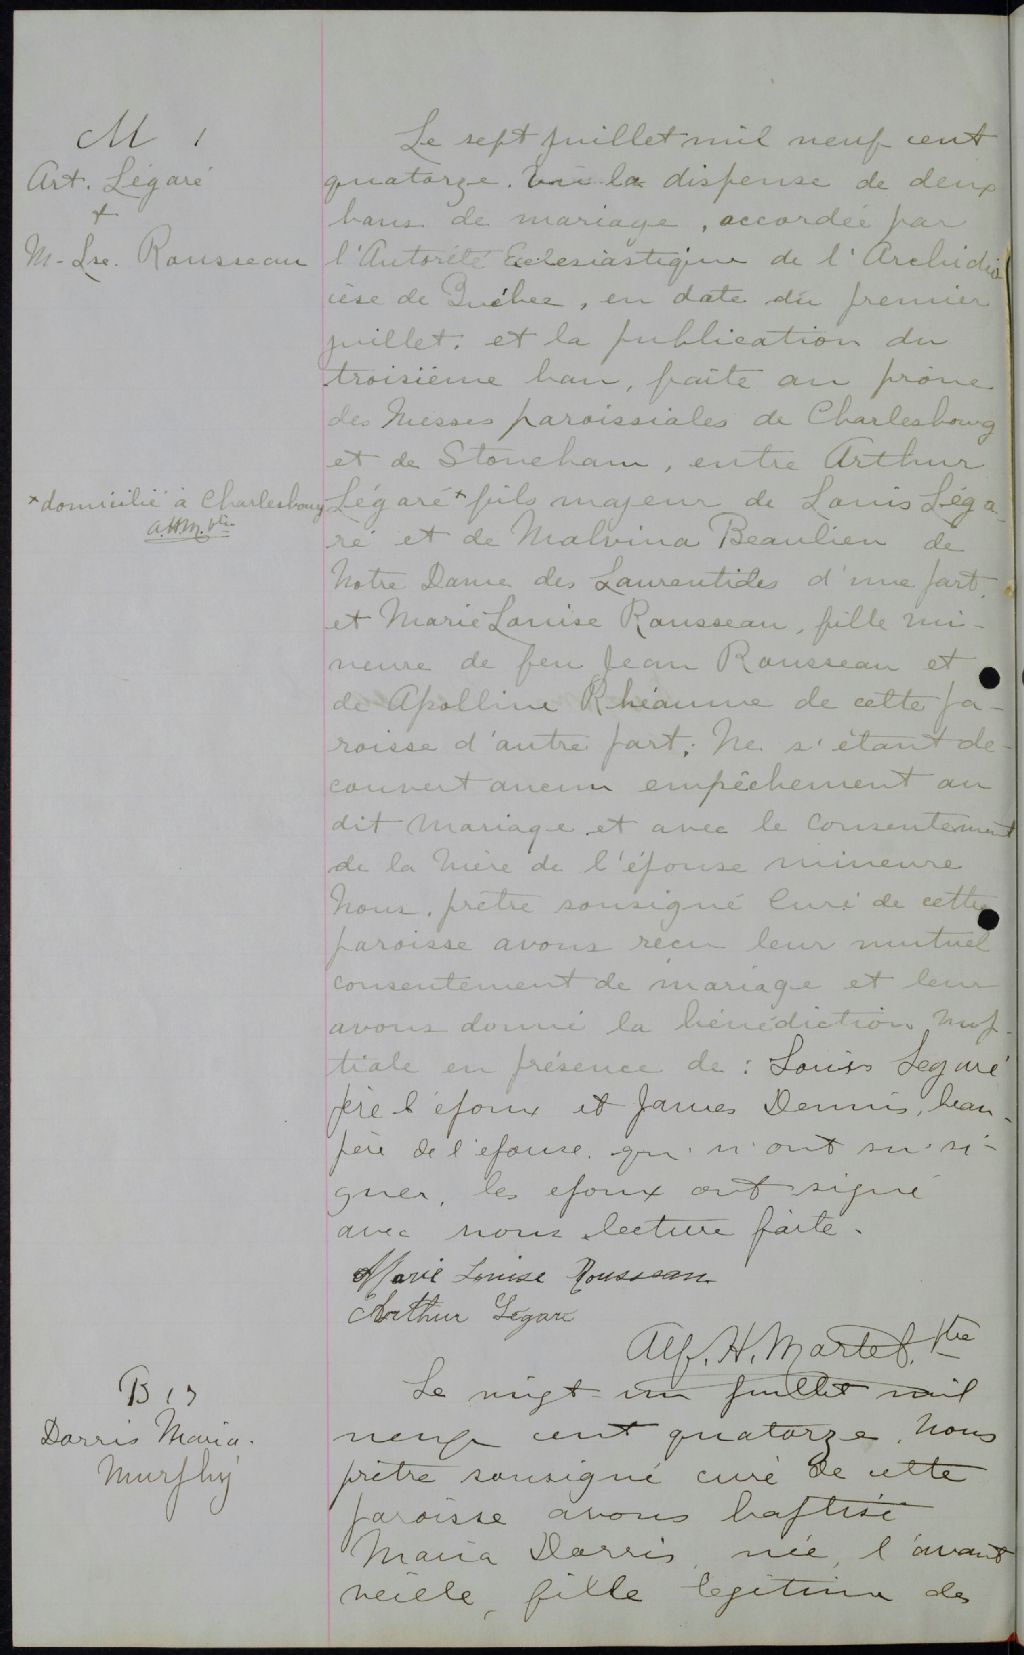 M 1
Art. Légaré
+
M-Lse. Rousseau
Le sept juillet mil neuf cent
quatorze. Vu la dispense de deux
bans de mariage, accordée par
l'Autorité Ecclesiastique de l'Archidio
cèse de Québec, en date du premier
juillet; et la publication du
troisième ban, faite au prône
des Messes paroissiales de Charlesbourg
et de Stoneham, entre Arthur
+ domicilié à Charlesbourg
A.H.M. Ptre
Légaré + fils majeur de Louis Léga-
ré et de Malvina Beaulieu de
Notre Dame des Laurentides d'une part,
et Marie Louise Rousseau, fille mi-
neure de feu Jean Rousseau et
de Apolline Rhéaume de cette pa-
roisse d'autre part; Ne s'étant dé-
couvert aucun empêchement au
dit mariage et avec le consentement
de la Mère de l'épouse mineure
Nous, prêtre sousigné Curé de cette
paroisse avons reçu leur mutuel
consentement de mariage et leur
avons donné la bénédiction nup-
tiale en présence de : Louis Legaré
père l'époux et James Dennis, beau-
père de l'épouse. qui n'ont su si-
gner, les epoux ont signé
avec nous lecture faite.
Marie Louise Rousseau
Arthur Légaré
Alf. H. Martel. Ptre
B 17
Dorris Maria
Murphy
Le vingt-un juillet mil
neuf cent quatorze, Nous
prêtre sousigné curé de cette
paroisse avons baptisé
Maria Dorris, née, l'avant
veille, fille legitime de